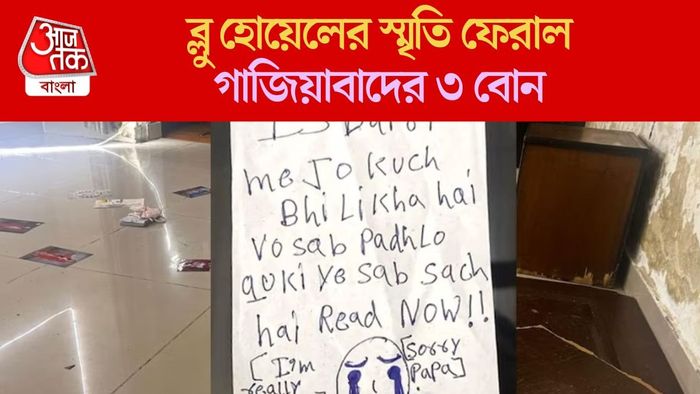 আজ
তক
বাংলা
ব্লু হোয়েলের স্মৃতি ফেরাল
গাজিয়াবাদের ৩ বোন
me Jo kuch
Bhi Likha hai
Vo sab Padh Lo
quki ye sab sach
hai Read NOW!!
[I'm
really
[sorry
Papa]